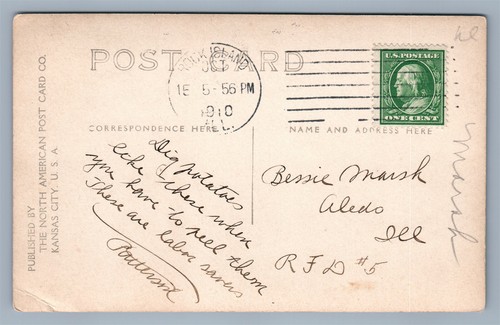 POST CARD
ROCK ISLAND
OCT
15
5-56 PM
1910
ILL.
U.S. POSTAGE
ONE CENT
CORRESPONDENCE HERE
NAME AND ADDRESS HERE
PUBLISHED BY
THE NORTH AMERICAN POST CARD CO.
KANSAS CITY, U. S. A.
Dig potatoes
like these when
you have to peel them
These are labor savers
Bessie Marsh
Aledo
Ill
R F D #5
Marsh